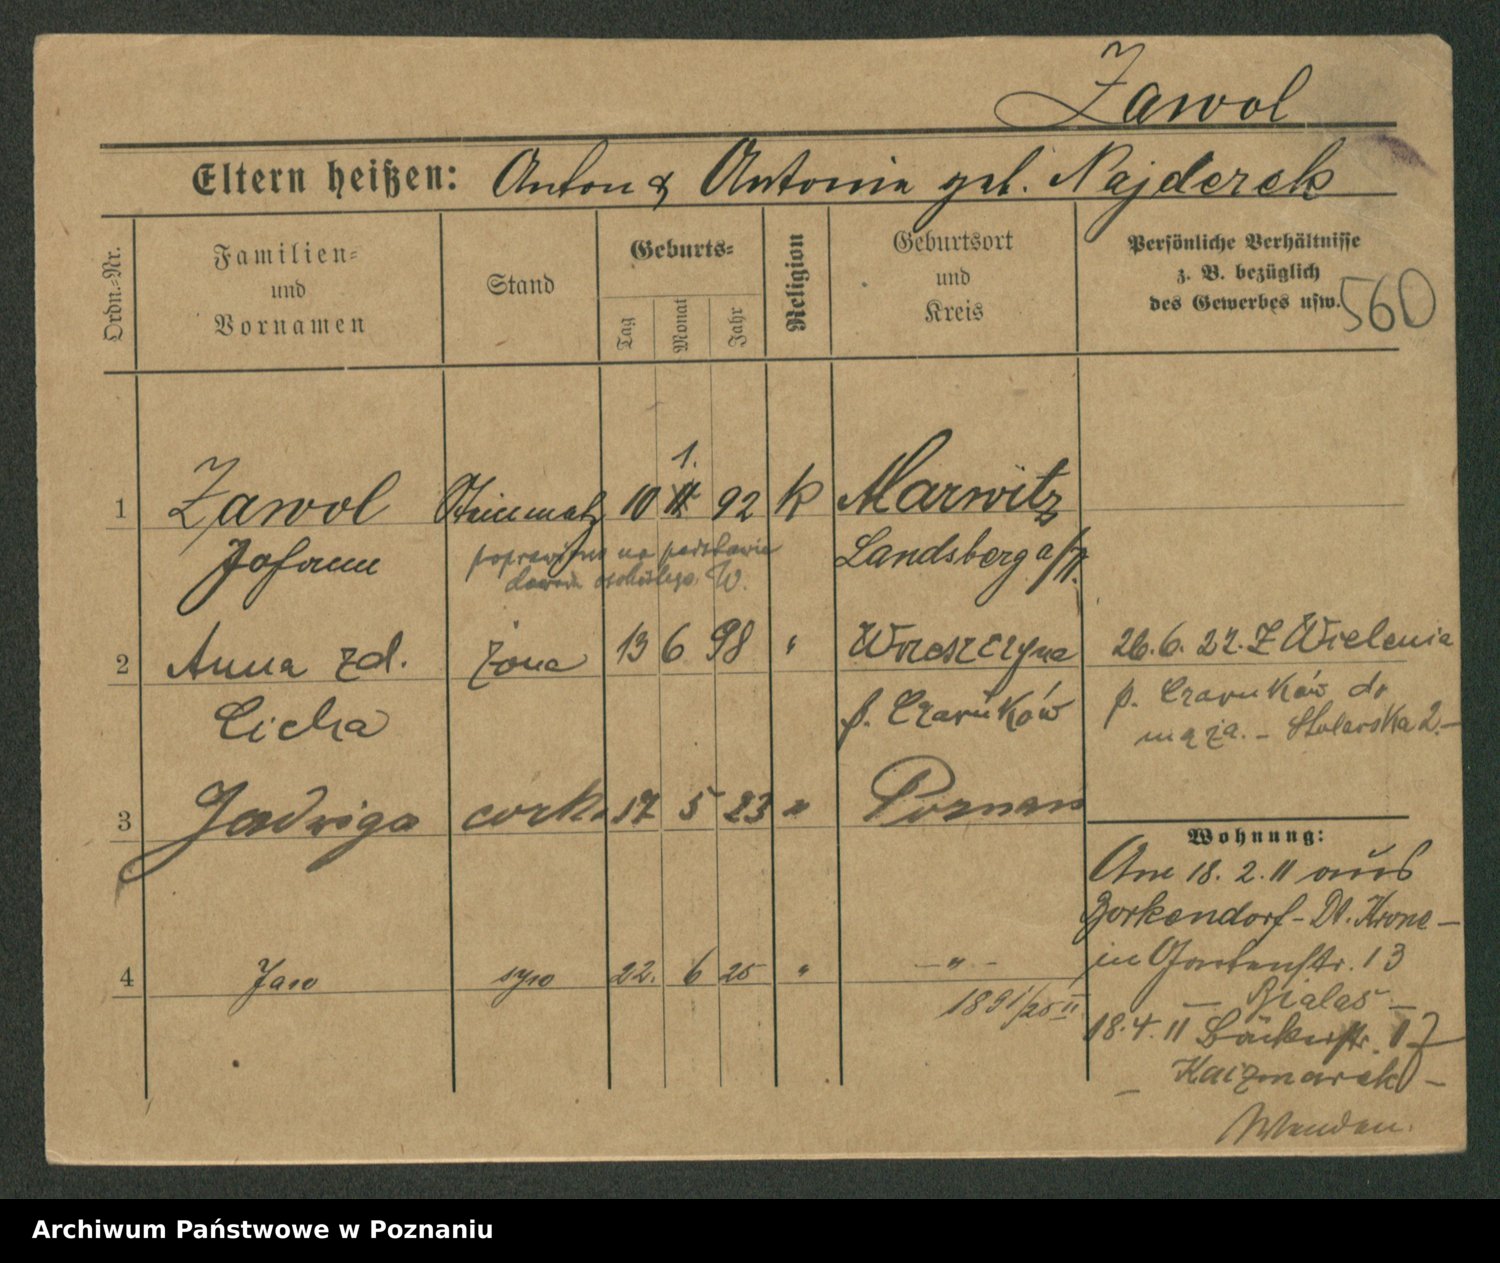 Zawol
Eltern heißen: Anton & Antonie geb. Najderek
Ordn.-Nr.
Familien-
und
Vornamen
Stand
Geburts-
Tag
Monat
Jahr
Religion
Geburtsort
und
Kreis
Persönliche Verhältnisse
z. B. bezüglich
des Gewerbes usw.
560
1.
1 Zawol Steinmetz 10 92 k Marwitz
Johann poprawiono na podstawie Landsberg a/W.
dowodu osobistego W.
2 Anna zd. żona 13 6 98 " Wrzeszczyna 26.6.22. Z Wielenia
Cicha p. Czarnków p. Czarnków do
męża. - Stolarska 2.-
3 Jadwiga córka 17 5 23 " Poznań
Wohnung:
Am 18. 2. 11 aus
Borkendorf - Dt. Krone -
in Gartenstr. 13
- Bialas -
4 Jan syn 22. 6 25 " - " -
1891/25 II
18.4.11 Bäckerstr. 17
- Kaizmarek -
Wenden.
Archiwum Państwowe w Poznaniu